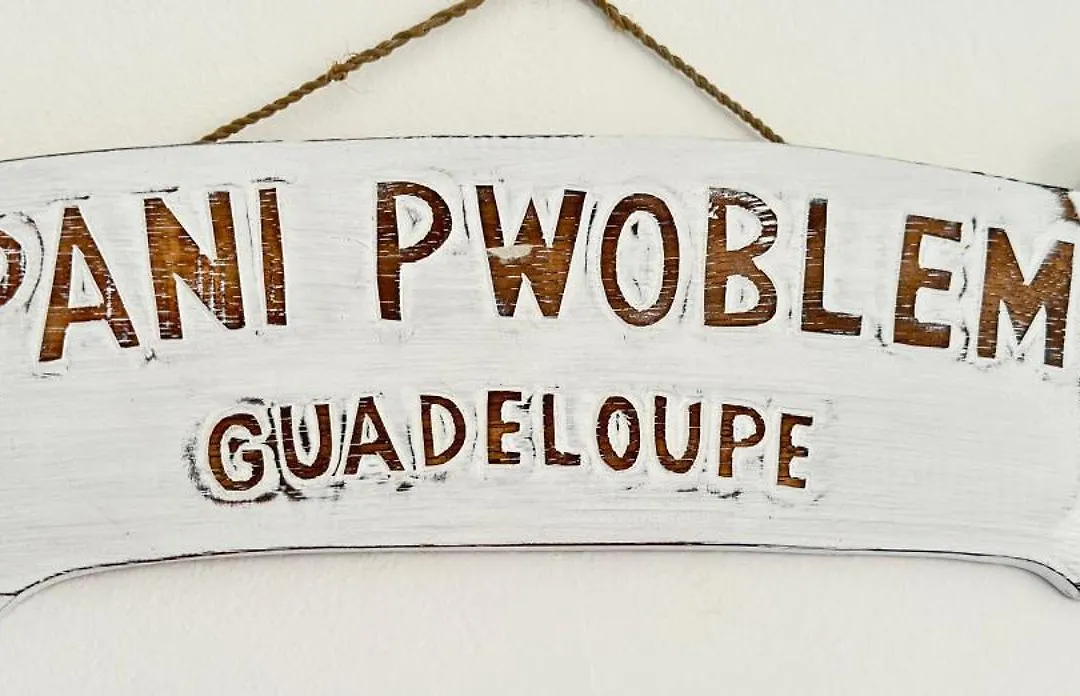 PANI PWOBLEM
GUADELOUPE